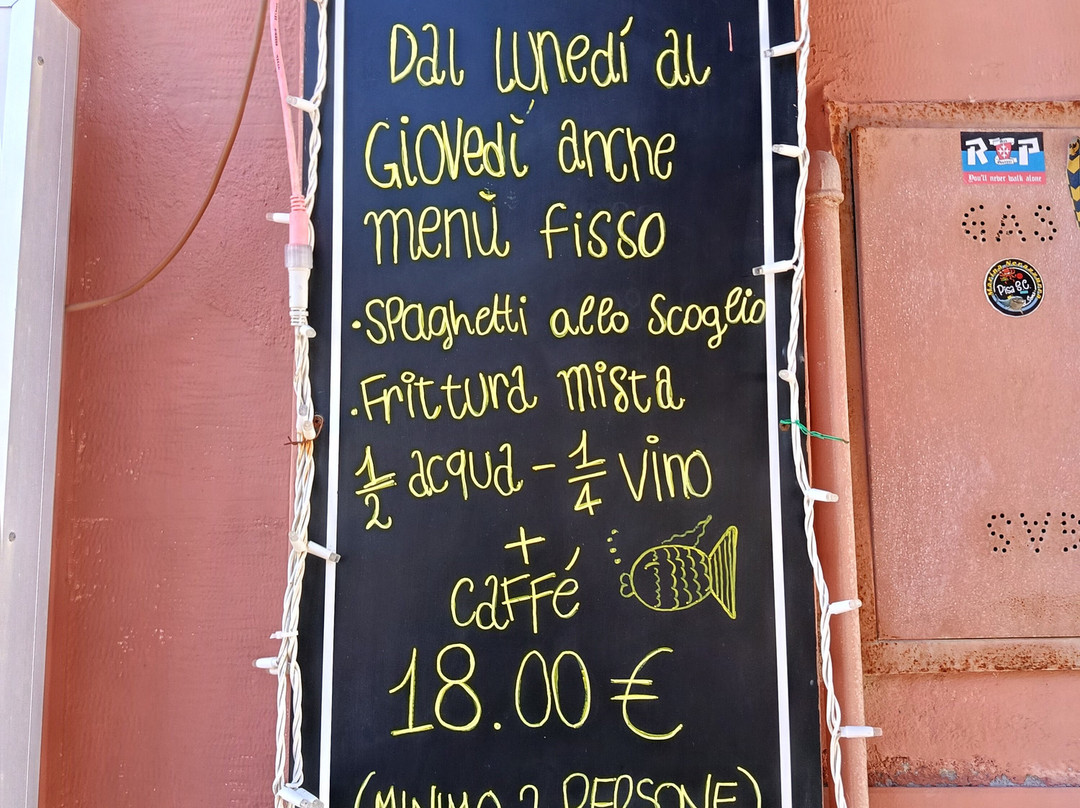 Dal lunedí al
Giovedì anche
menù fisso
• Spaghetti allo Scoglio
• Frittura mista
1/2 acqua - 1/4 vino
+
caffé
18.00 €
(MINIMO 2 PERSONE)
RIP
You'll never walk alone
GAS
Pisa S.C.